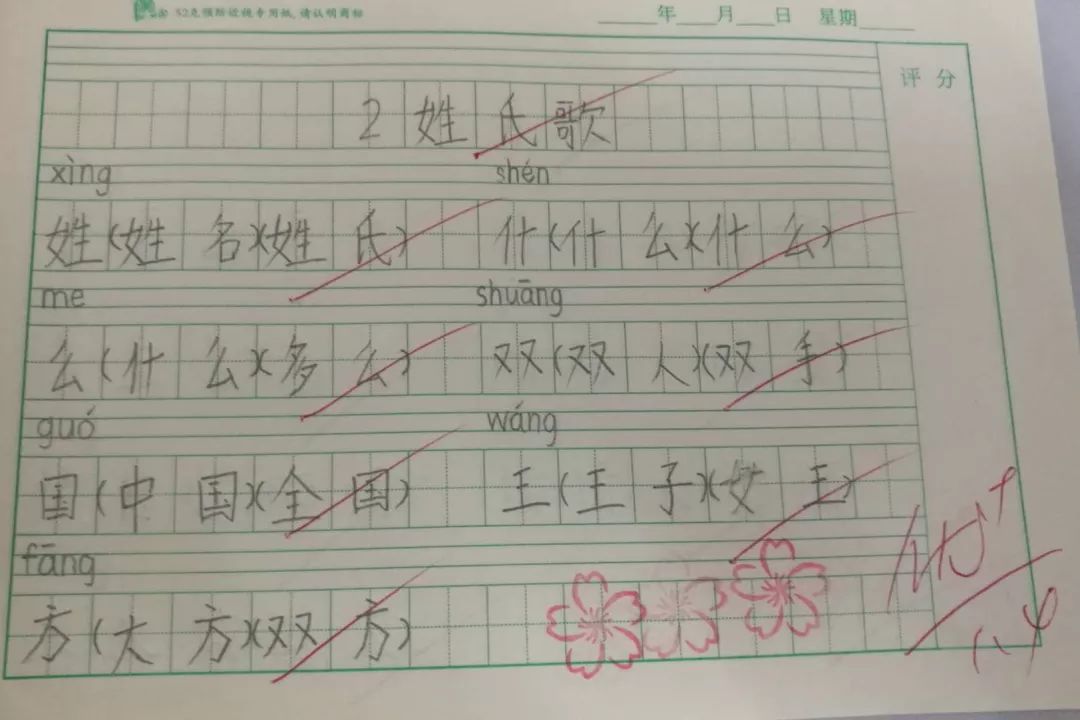 52克预防近视专用纸,请认明商标 年 月 日 星期
评分
2 姓氏歌
xìng shén
姓(姓名)(姓氏) 什(什么)(什么)
me shuāng
么(什么)(多么) 双(双人)(双手)
guó wáng
国(中国)(全国) 王(王子)(女王)
fāng
方(大方)(双方)